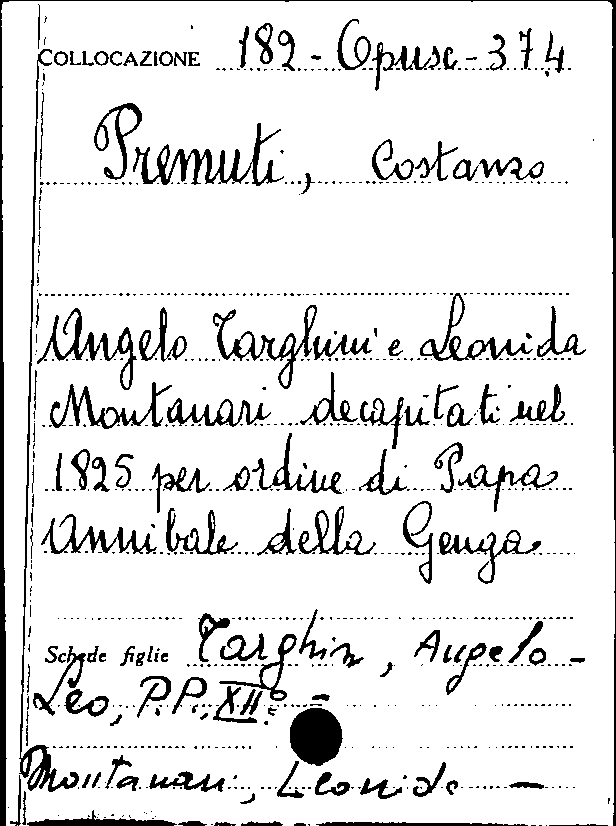 COLLOCAZIONE 182 - Opusc - 374
Premuti, Costanzo
Angelo Targhini e Leonida
Montanari decapitati nel
1825 per ordine di Papa
Annibale della Genga
Schede figlie Targhini, Angelo -
Leo, P.P. XIIº -
Montanari, Leonida -